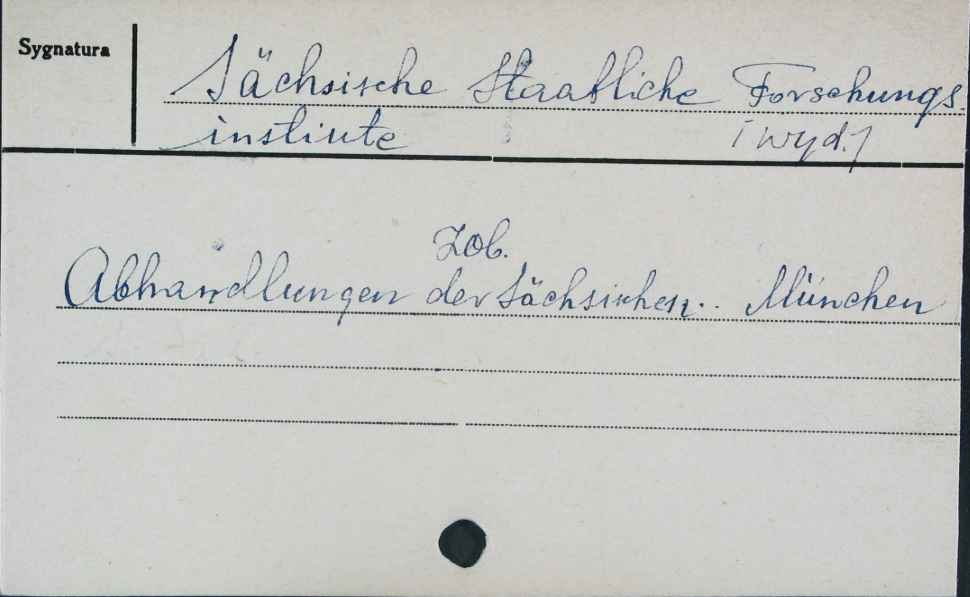 Sygnatura
Sächsische Staatliche Forschungs
institute (wyd.)
Zob.
Abhandlungen der Sächsischen.. München